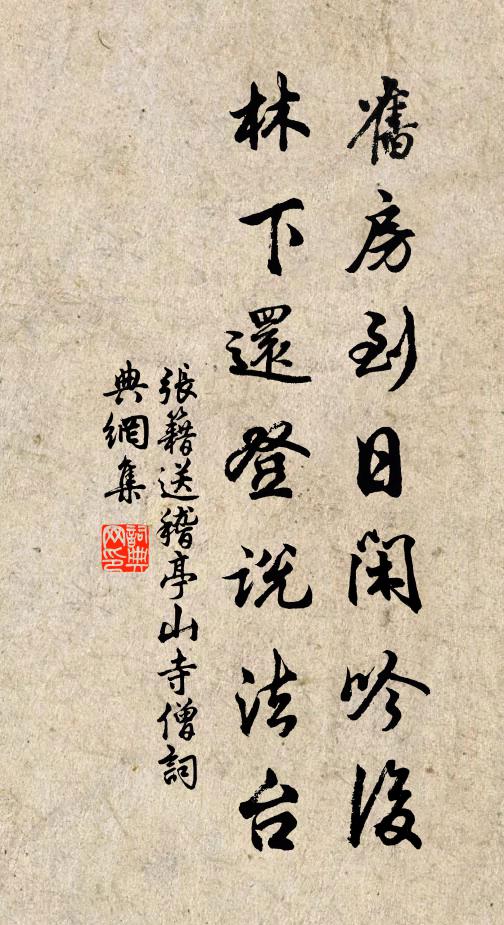 舊房到日閑吟後
林下還登説法台
張籍送稽亭山寺僧詞
典網集
詞典
网印